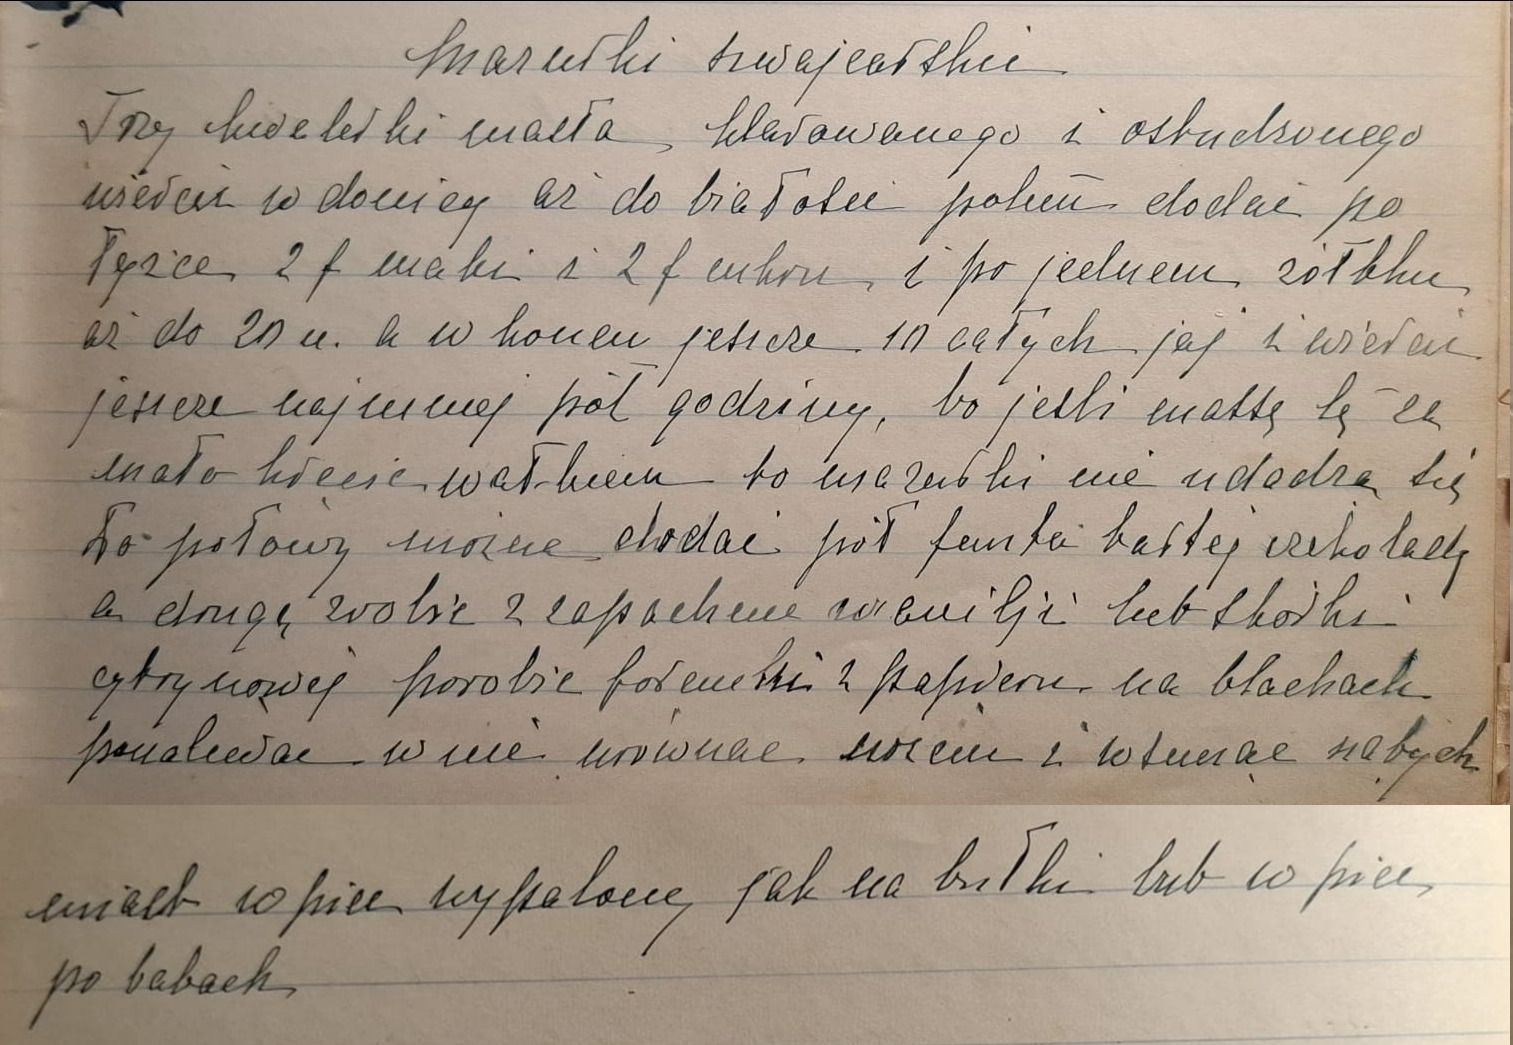 Mazurki szwajcarskie
Trzy kwaterki masła klarowanego i ostudzonego
wiercić w donicy aż do białości potem dodać po
łyżce 2 f mąki i 2 f cukru i po jednem żółtku
aż do 20 u. a w końcu jeszcze 10 całych jaj i wiercić
jeszcze najmniej pół godziny, bo jeśli massę tę za
mało kręcić wałkiem to mazurki nie udadzą się
Do połowy można dodać pół funta tartej czekolady
a drugą zrobić z zapachem wanilji lub skórki
cytrynowej porobić foremki z papieru na blachach
ponalewać w nie równać nożem i wsunąć na tych
miast w piec wypalony jak na bułki lub w piec
po babach